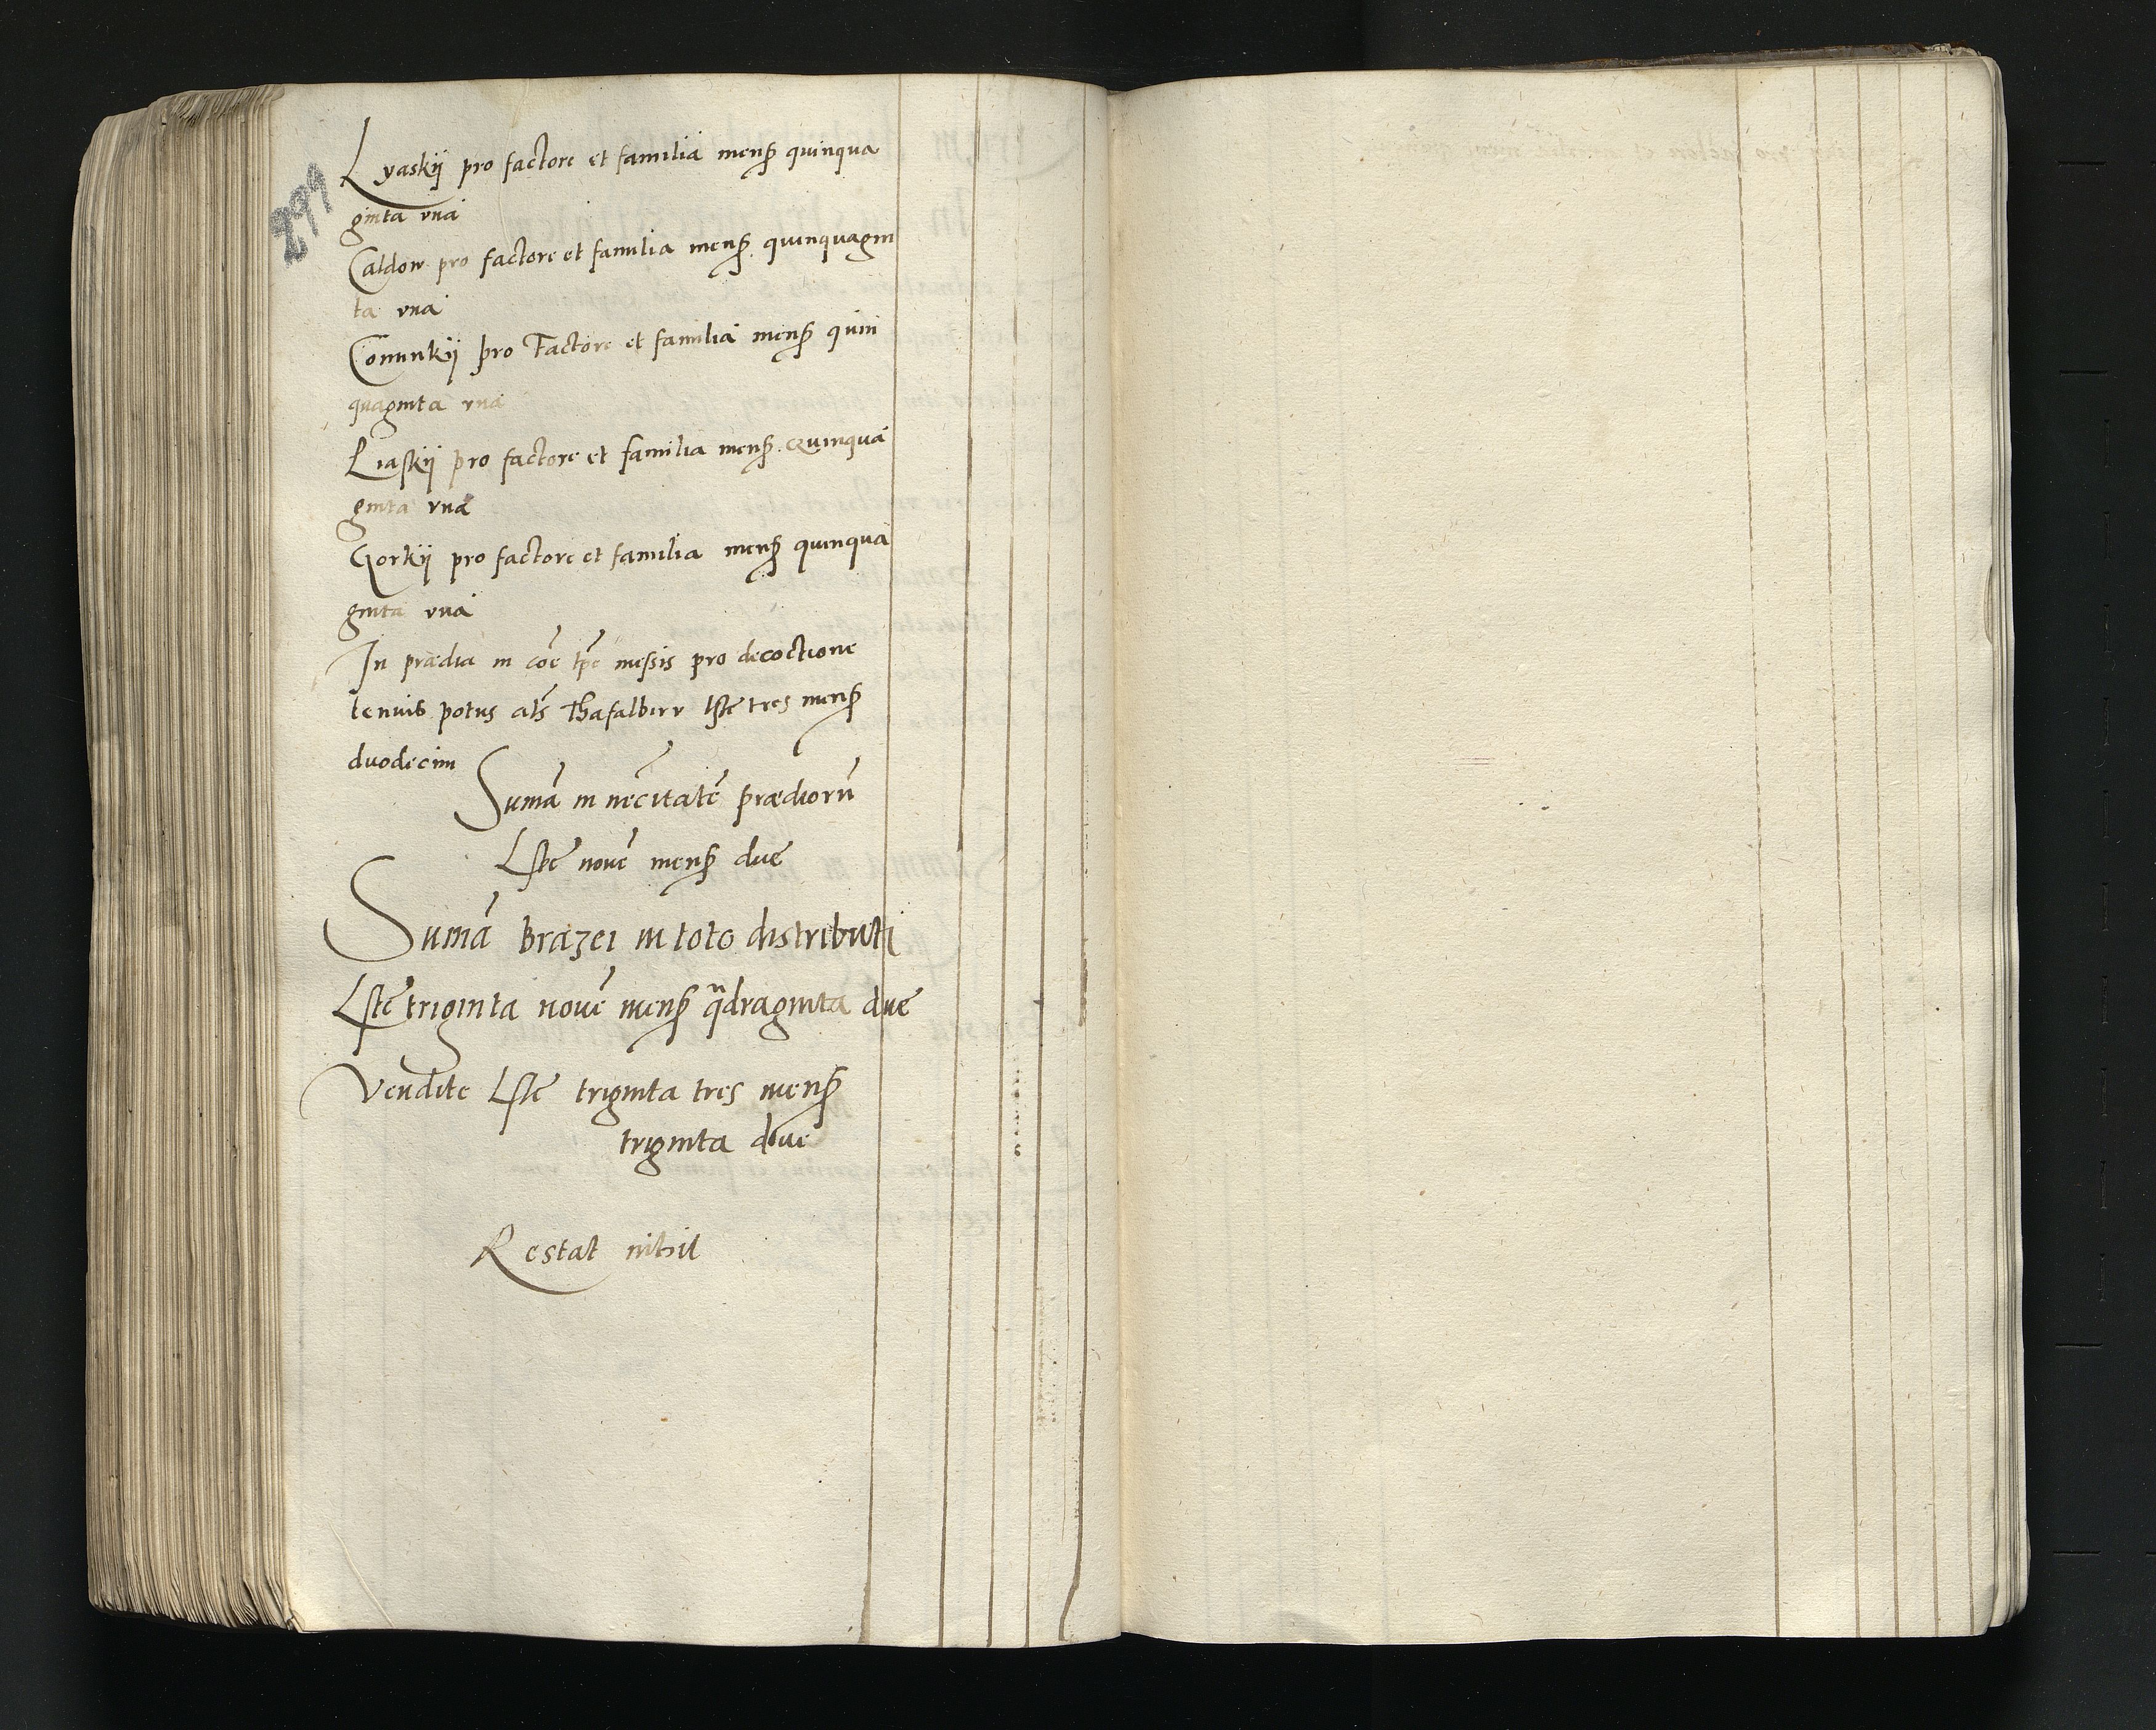 299
Lyaskij pro factore et familia menß quinqua
ginta vna
Caldow pro factore et familia menß quinquagin
ta vna
Conunkij pro Factore et familia menß quin
quaginta vna
Liaskij pro factore et familia menß Quinqua
ginta vna
Gorkij pro factore et familia menß quinqua
ginta vna
In prædia in cōe tp̄e messis pro decoctione
tenuis potus al̄s Thafalbirr Lste tres menß
duodecim
Sumā in necītatē prædiorū
Lste nouē menß due
Sumā brazei in toto distributi
Lste triginta nouē menß qdraginta due
Vendite Lste triginta tres menß
triginta due
Restat nihil